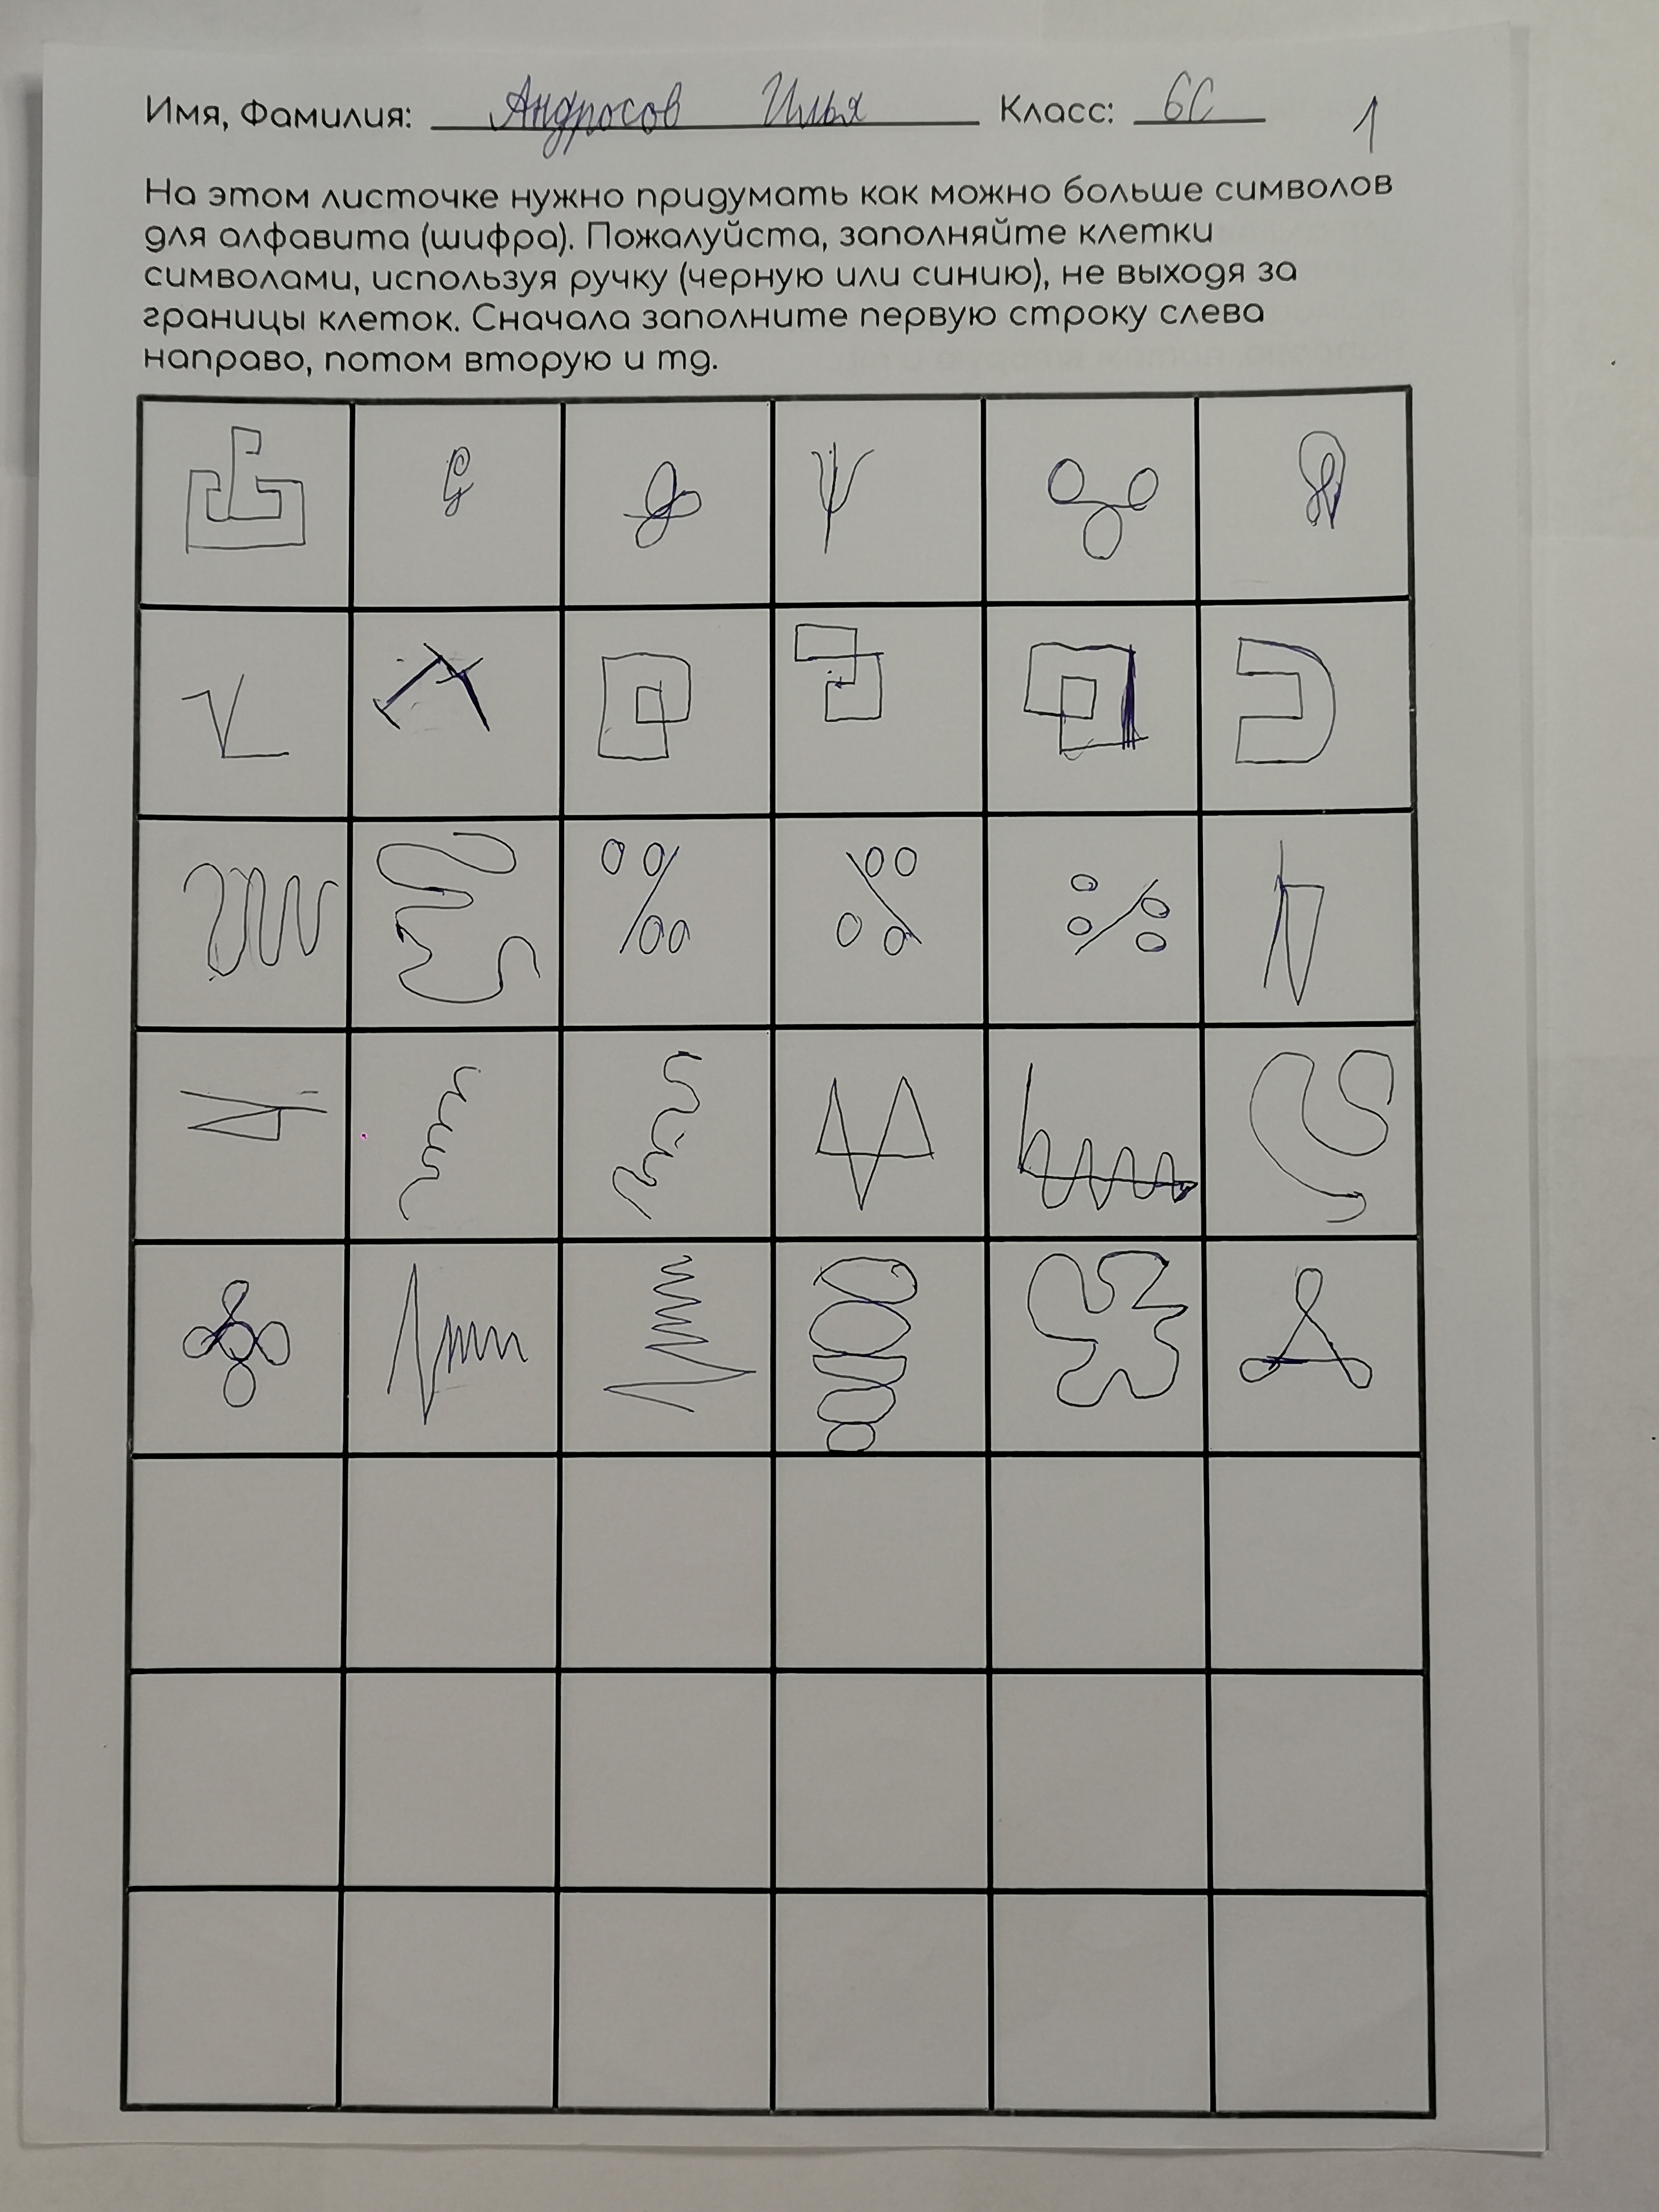 Имя, Фамилия: Андросов Илья Класс: 6С 1
На этом листочке нужно придумать как можно больше символов
для алфавита (шифра). Пожалуйста, заполняйте клетки
символами, используя ручку (черную или синию), не выходя за
границы клеток. Сначала заполните первую строку слева
направо, потом вторую и тд.